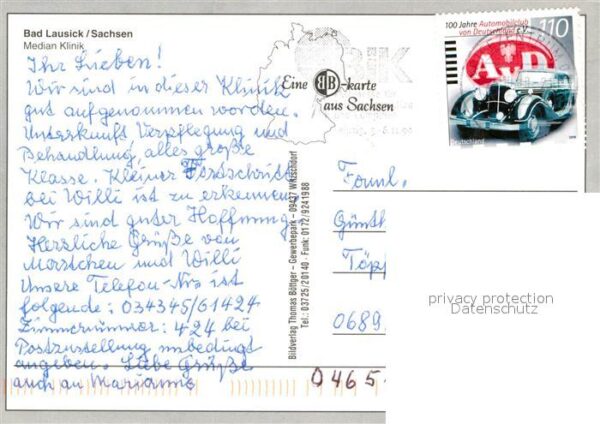 Bad Lausick / Sachsen
Median Klinik
Ihr Lieben!
Wir sind in dieser Klinik
gut aufgenommen worden.
Unterkunft Verpflegung und
Behandlung, alles große
Klasse. Kleiner Fortschritt
bei Willi ist zu erkennen
Wir sind guter Hoffnung
Herzliche Grüße von
und Willi
Unsere Telefon-Nr. ist
folgende: 034345/61424
Zimmernummer: 424 bei
Postzustellung unbedingt
angeben. Liebe Grüße
auch an Marianne
Eine BB-karte
aus Sachsen
100 Jahre Automobilclub
von Deutschland e.V.
110
AvD
Deutschland
Bildverlag Thomas Böttger – Gewerbepark – 09437 Witzschdorf
Tel.: 03725/20140 · Funk: 0172/9241988
Faml.
Günth
Töpf
0689
0465
privacy protection
Datenschutz